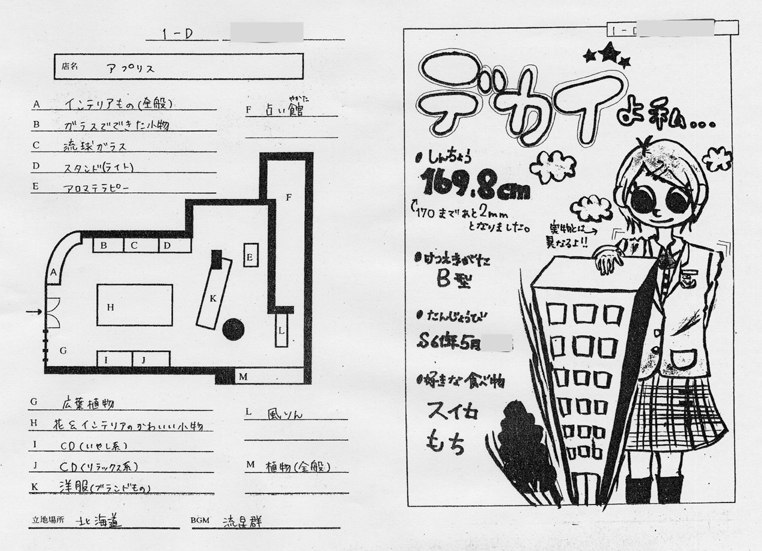 1-D
店名 アプリス
A インテリアもの(全般)
B ガラスでできた小物
C 流球ガラス
D スタンド(ライト)
E アロステラピー
F 占い館
やかた
F
B C D
E
A
K
H
L
G
I J
M
G 広葉植物
H 花&インテリアのかわいい小物
I CD(いやし系)
J CD(リラックス系)
K 洋服(ブランドもの)
L 風りん
M 植物(全般)
立地場所 北海道
BGM 流星群
1-D
デカイよ私...
・しんちょう
169.8cm
170まであと2mm
となりました。
実物とは→
異なるよ!!
・けつえきがた
B型
・たんじょうび
S61年5月
・好きな食べ物
スイカ
もち